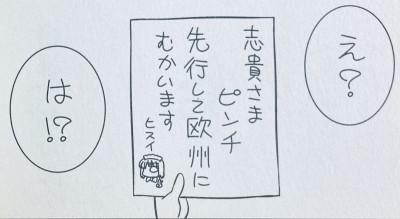 え?
志貴さま
ピンチ
先行して欧州に
むかいます
ヒスイ
は!?